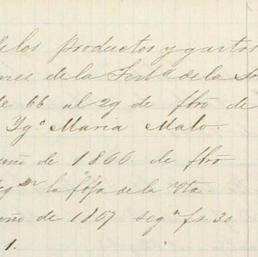 los productos y gastos
nes de la Test.a de la
de 66 al 29 de fbro de
Yg.o Maria Malo.
año de 1866 de fbro
la foja de la Vta
año de 1867 seg.n fs. 30
1.